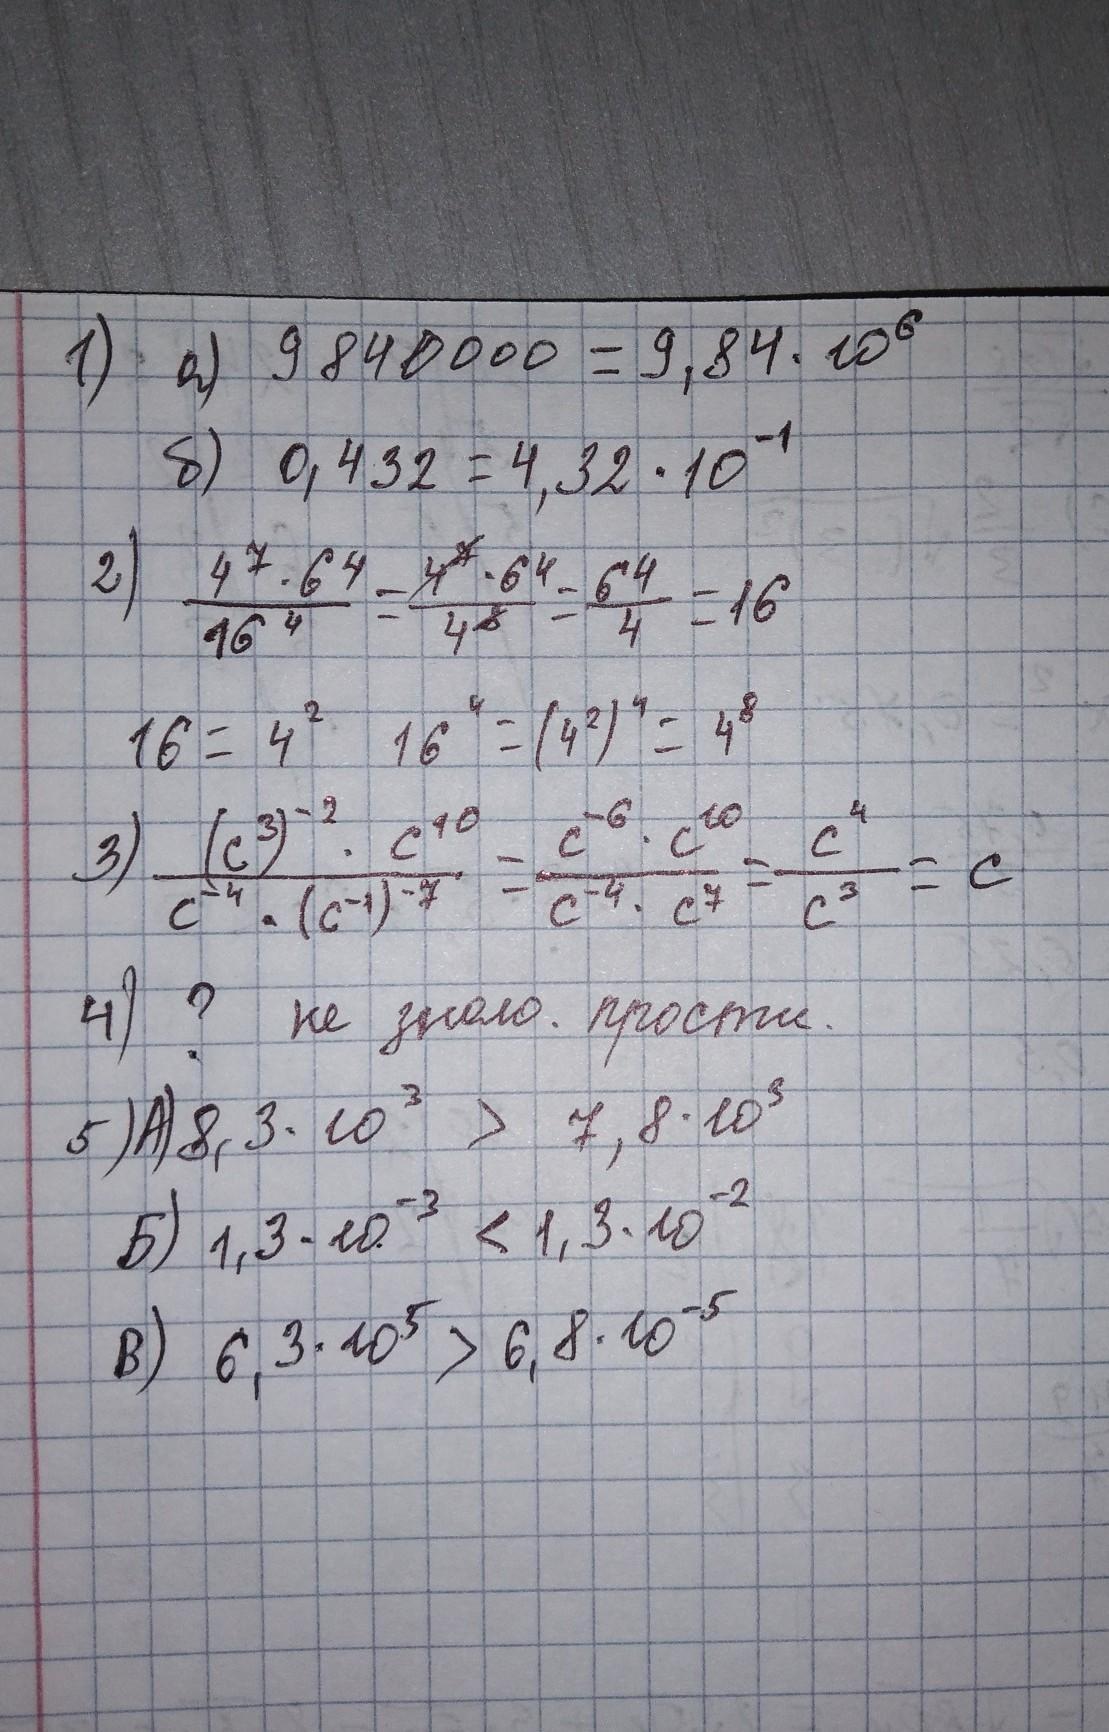 1) а) 9840000 = 9,84 · 10⁶
б) 0,432 = 4,32 · 10⁻¹
2) (4⁷ · 64)/(16⁴) = (4⁷ · 64)/(4⁸) = 64/4 = 16
16 = 4² 16⁴ = (4²)⁴ = 4⁸
3) ((c³)⁻² · c¹⁰)/(c⁻⁴ · (c⁻¹)⁻⁷) = (c⁻⁶ · c¹⁰)/(c⁻⁴ · c⁷) = c⁴/c³ = c
4) ? не знаю. прости.
5) А) 8,3 · 10³ > 7,8 · 10³
Б) 1,3 · 10⁻³ < 1,3 · 10⁻²
В) 6,3 · 10⁵ > 6,8 · 10⁻⁵